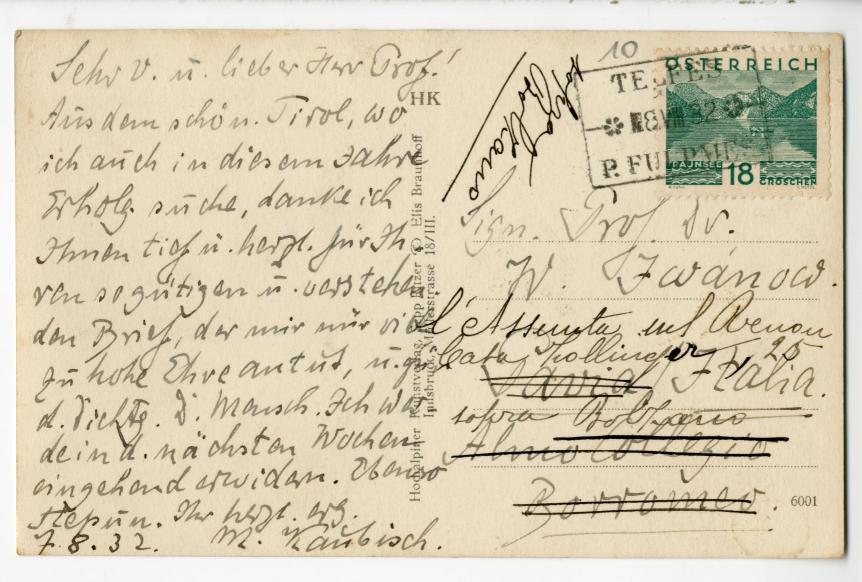 Sehr v. u. lieber Herr Prof.!
Aus dem schön. Tirol, wo
ich auch in diesem Jahre
Erholg. suche, danke ich
Ihnen tief u. herzl. für Ih
ren so gütigen u. verstehen
den Brief, der mir nur viel
zu hohe Ehre antut, u.
d. Dichtg. D. Mensch. Ich wer
de in d. nächsten Wochen
eingehend erwidern. Ebenso
Stepun. Ihr herzl. erg.
7.8.32. M. Kaubisch.
HK
Hochalpiner Kunstverlag, Elis Braunhoff
Innsbruck, 18/III.
sopra
Bolzano
10
ÖSTERREICH
TELFES
8 VIII 32
P. FULPMES
18 GROSCHEN
Sign. Prof. Dr.
W. Iwánow.
l'Assunta sul Renon
Casa Hollinger, 25
Pavia Italia.
sopra Bolzano
Almo Collegio
Borromeo.
6001